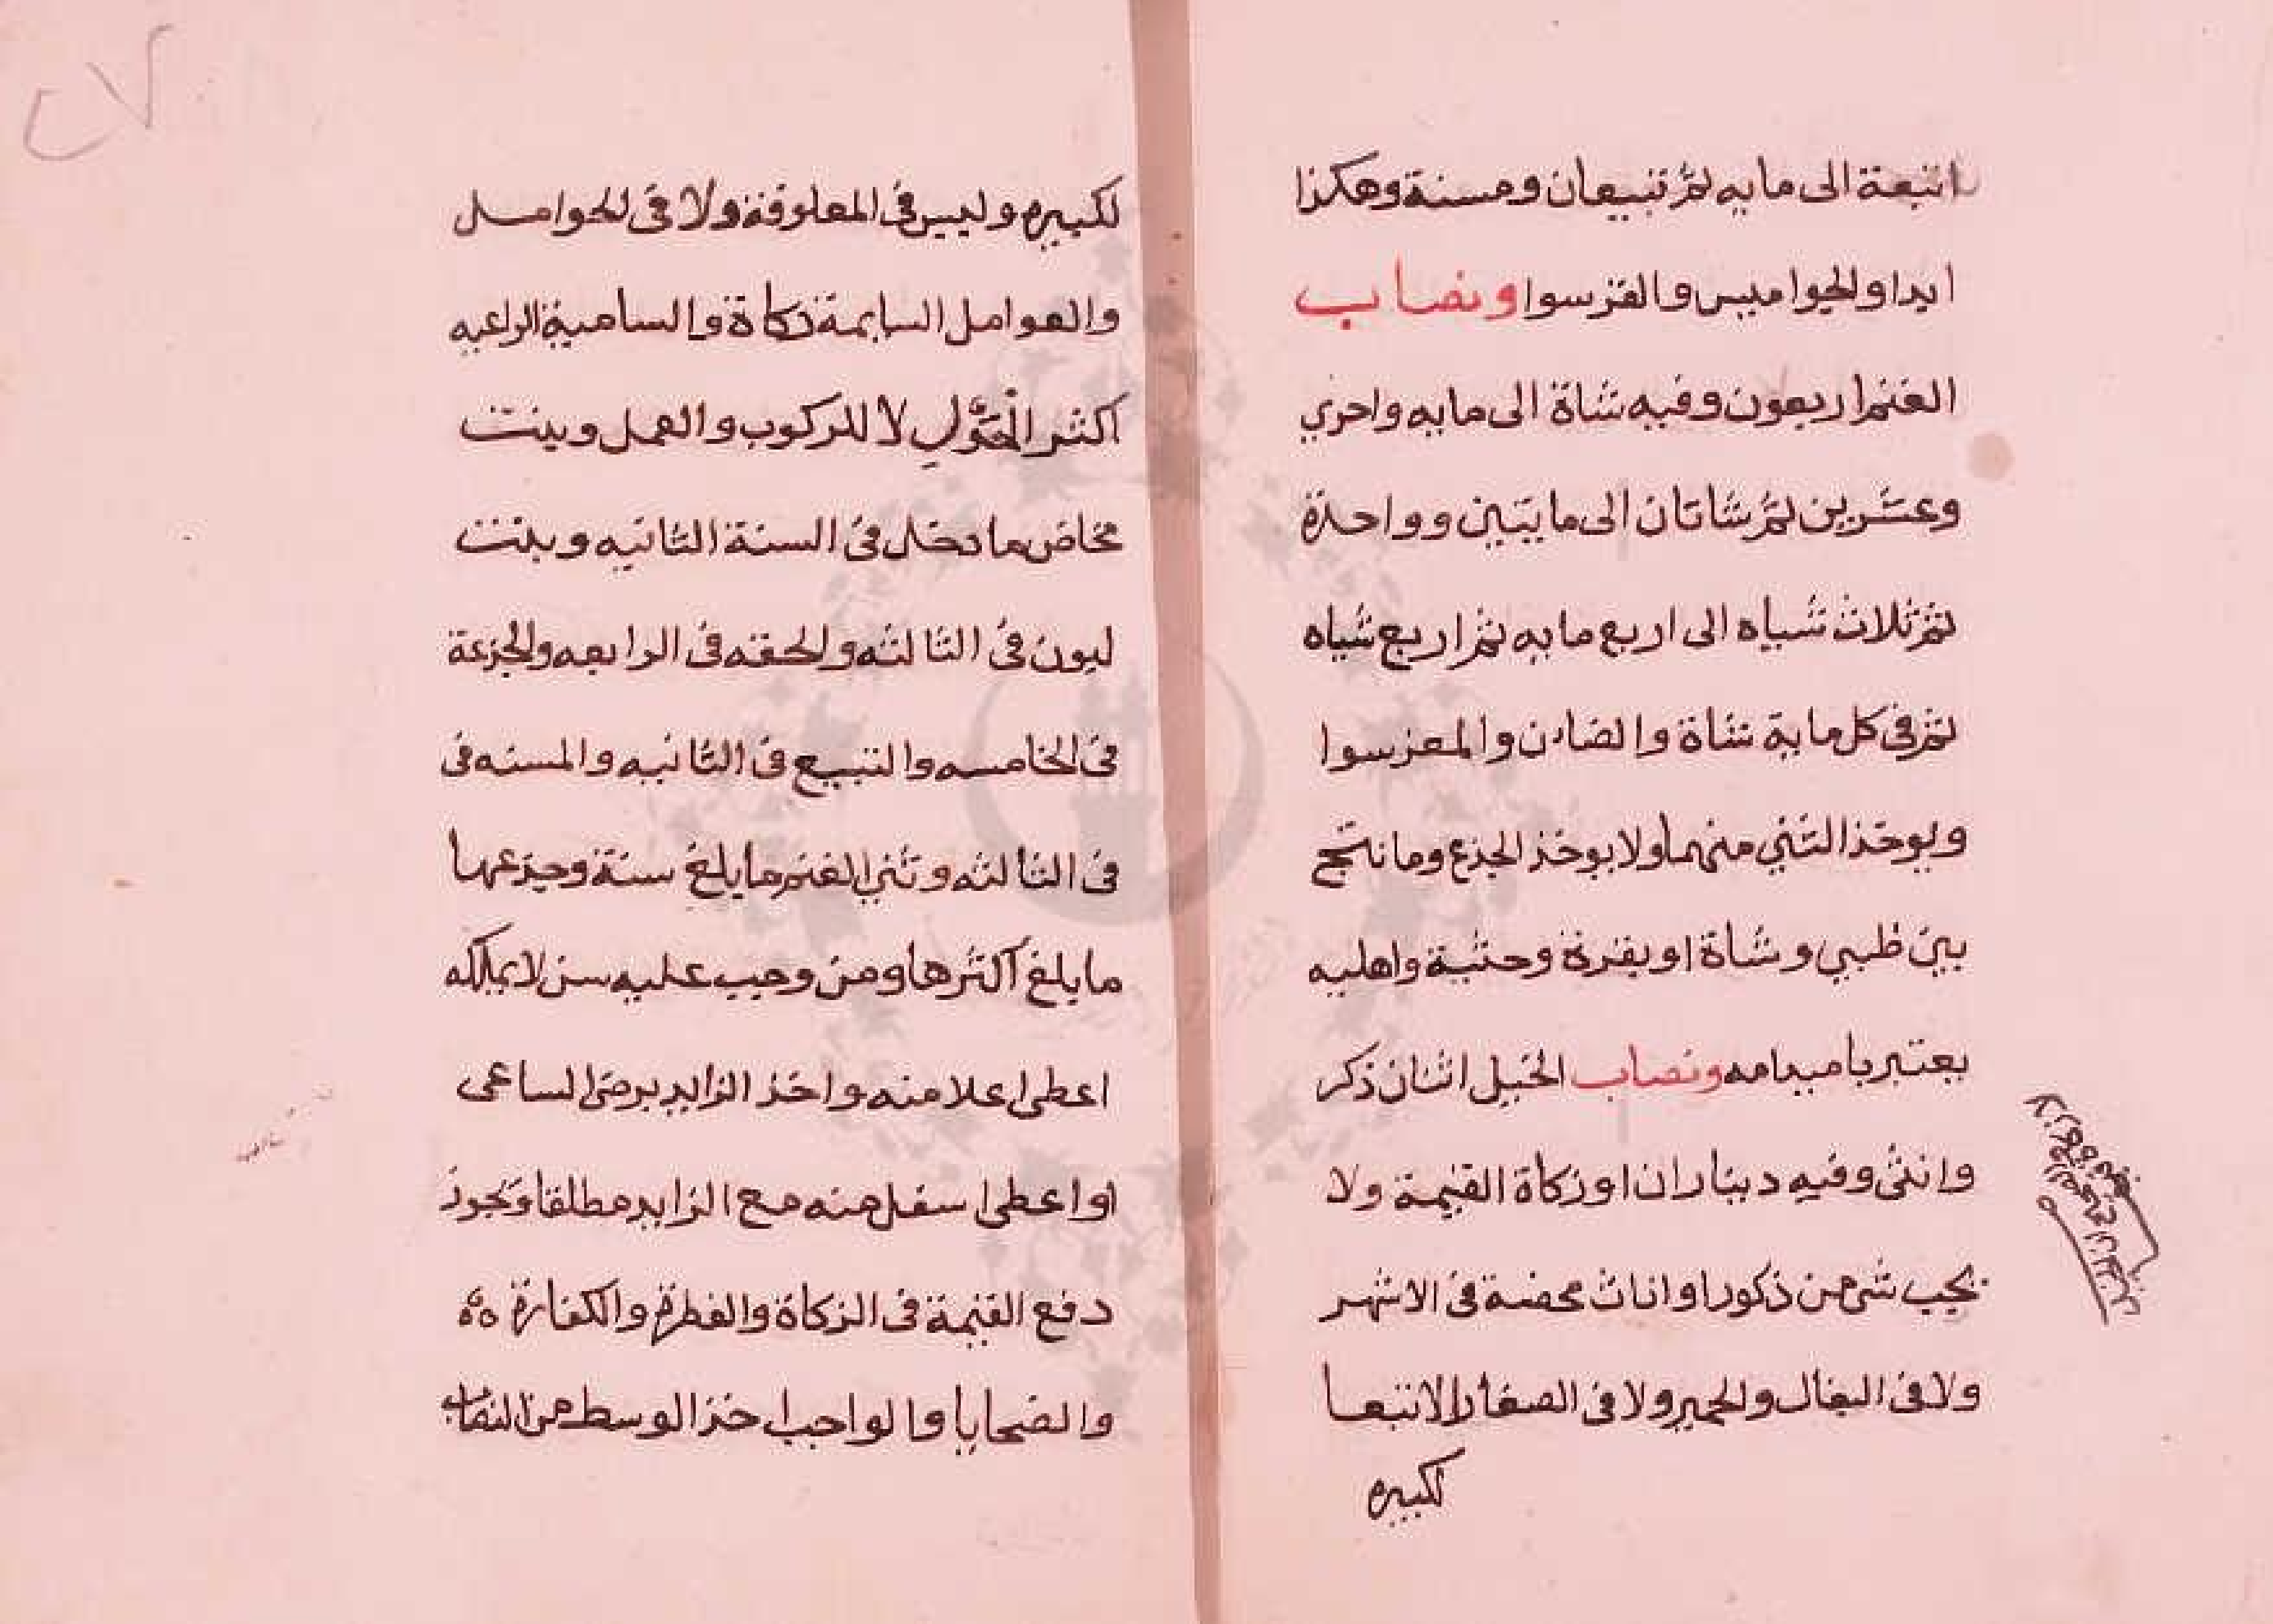 اتبعة الى مايه ثم تبيعان ومسنة وهكذا
ابدا والجواميس والبقر سوا ونصاب
الغنم اربعون وفيه شاة الى مايه واحدي
وعشرين ثم شاتان الى مايتين وواحدة
ثم ثلاث شياه الى اربع مايه ثم اربع شياه
ثم فى كل ماية شاة والضان والمعز سوا
ويوخذ الثني منهما ولا يوخذ الجذع وما نتج
بين ظبي وشاة او بقرة وحشية واهليه
يعتبر بامه ونصاب الخيل اثنان ذكر
وانثى وفيه ديناران او زكاة القيمة ولا
يجب شى من ذكور او اناث محضة فى الاشهر
ولا فى البغال والحمير ولا فى الصغار الا تبعا
لكبيره
لكبيره وليس فى المعلوفة ولا فى الحوامل
والعوامل السايمة زكاة والسامية الراعيه
اكثر الحول لا للركوب والعمل وبنت
مخاض ما دخل فى السنة الثانيه وبنت
لبون فى الثالثه والحقه فى الرابعه والجزعة
فى الخامسه والتبيع فى الثانيه والمسنه فى
فى الثالثه وثني الغنم ما بلغ سنة وجذعها
ما بلغ اكثرها ومن وجب عليه سن لا يملكه
اعطى اعلا منه واخذ الزايد برضى الساعى
او اعطى اسفل منه مع الزايد مطلقا ويجوز
دفع القيمة فى الزكاة والفطرة والكفارة
والضحايا والواجب اخذ الوسط من النصاب